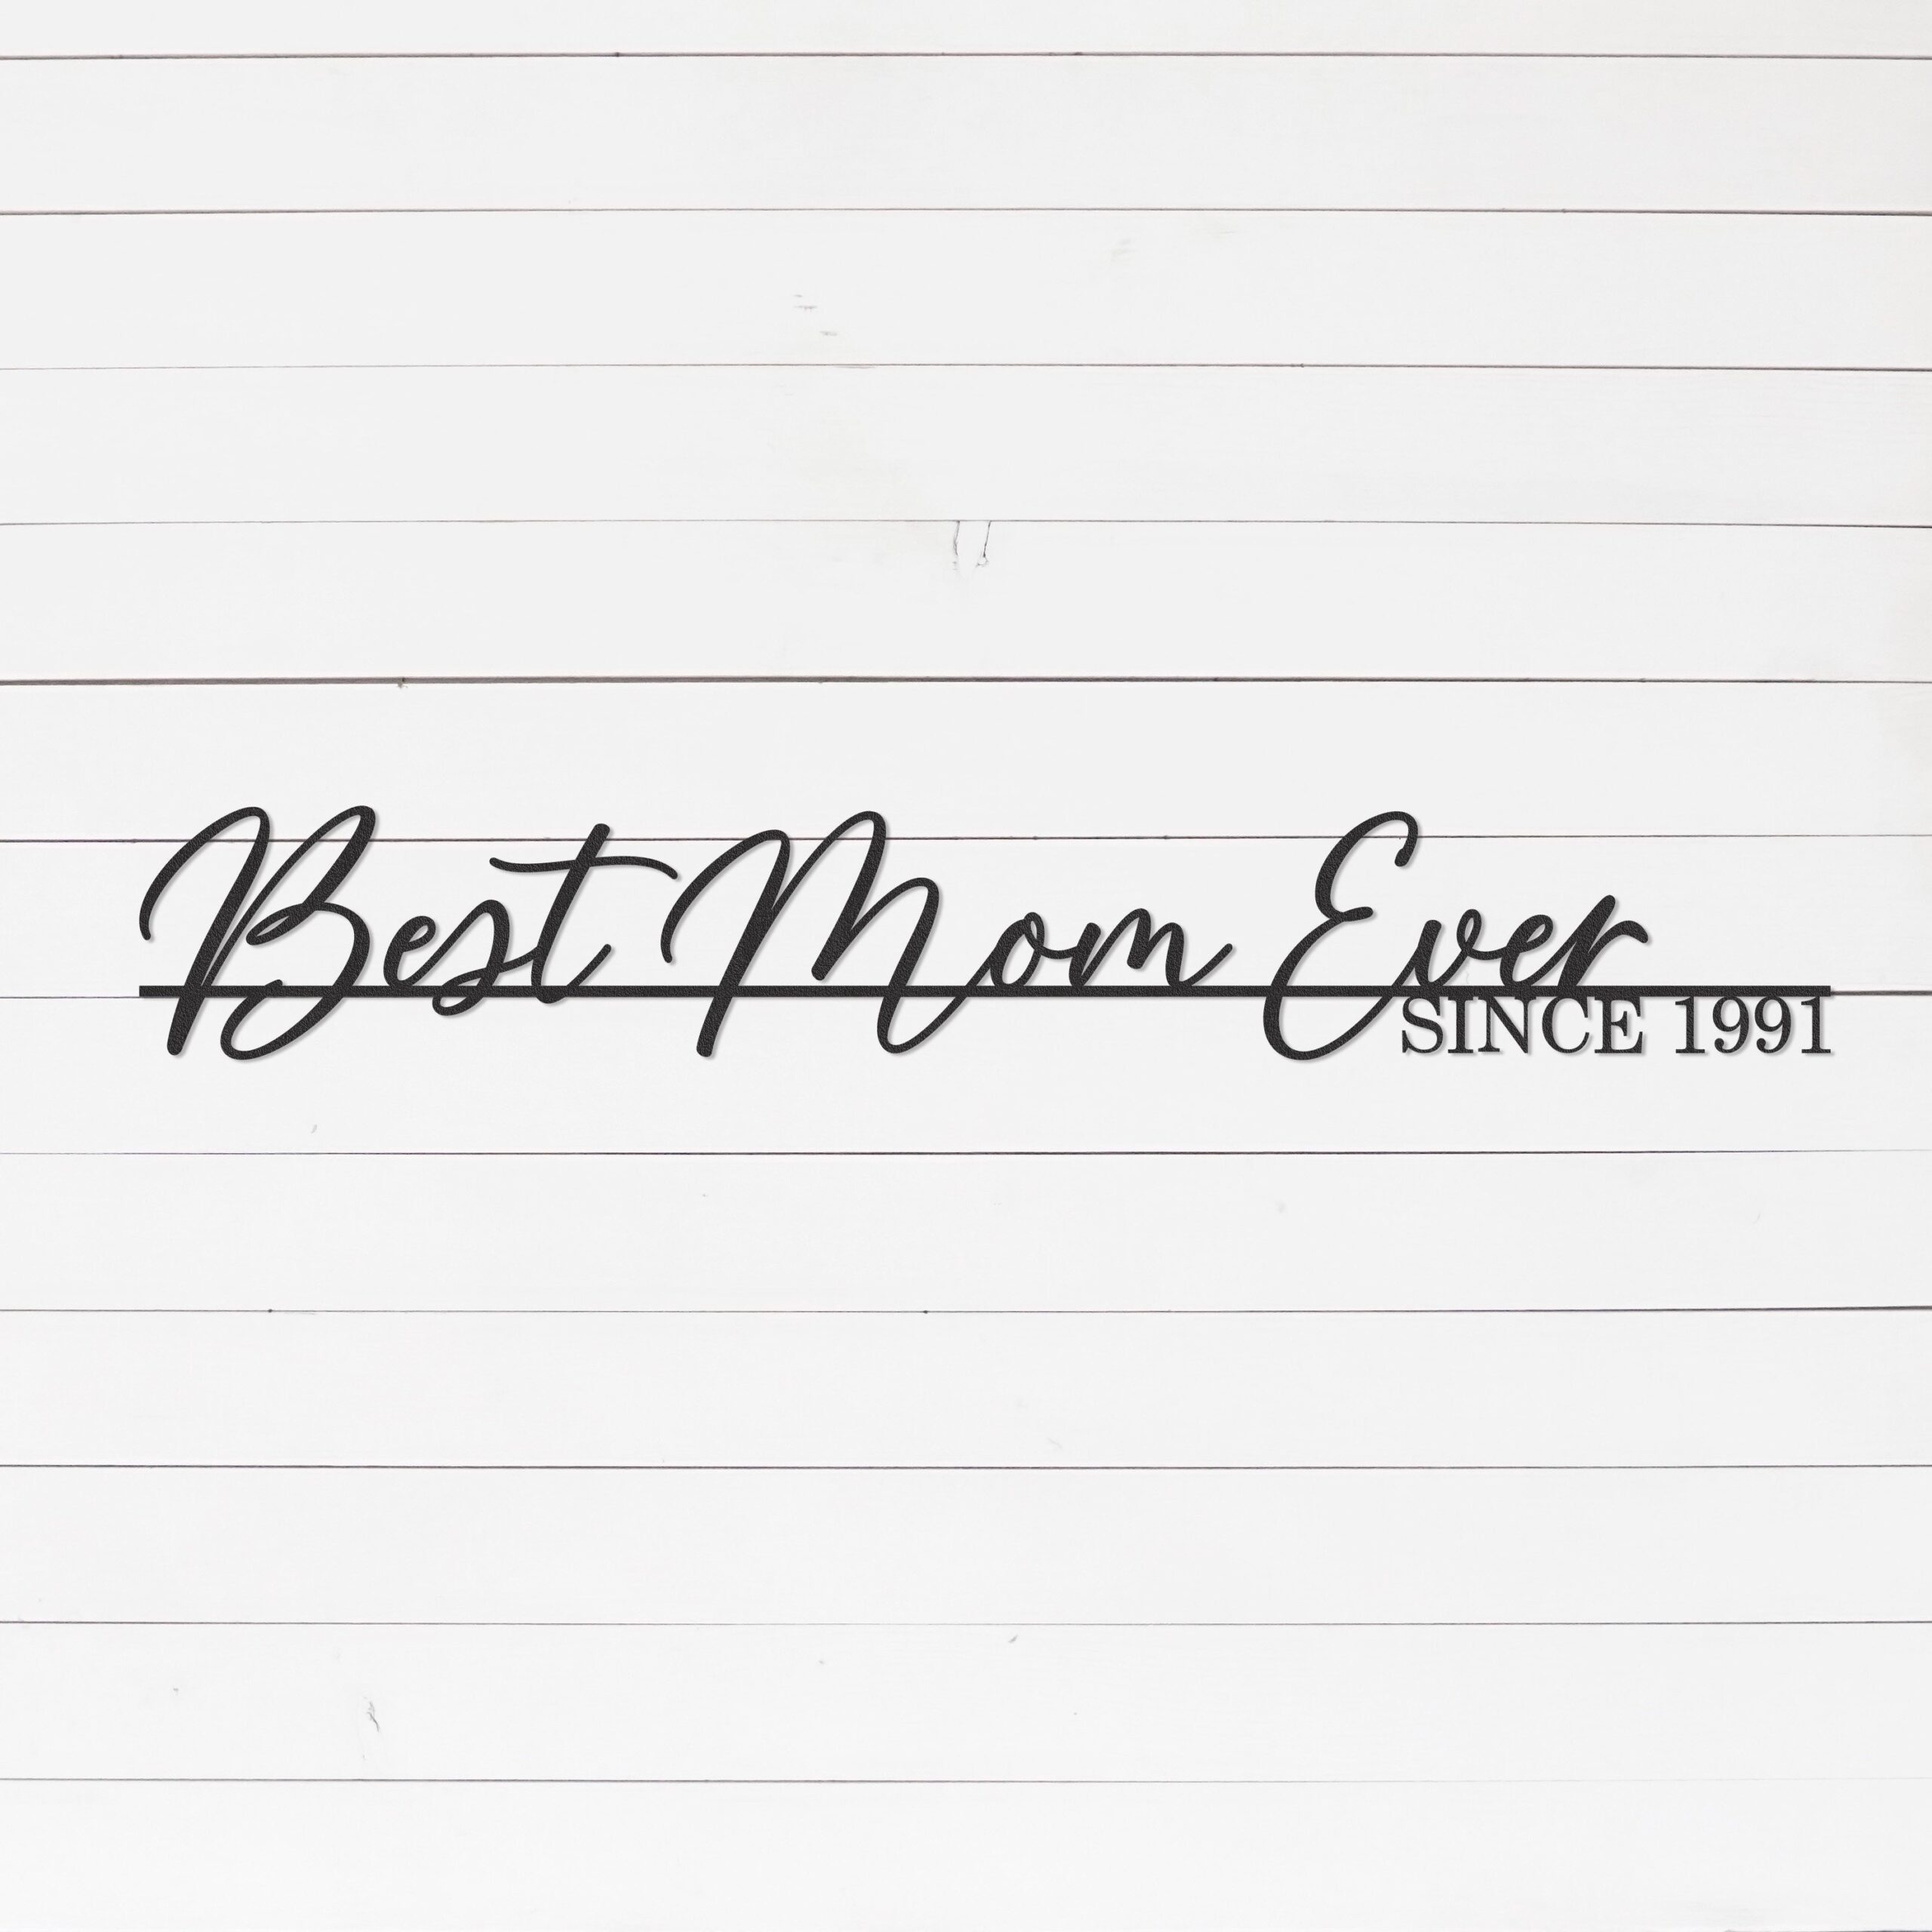 Best Mom Ever
SINCE 1991